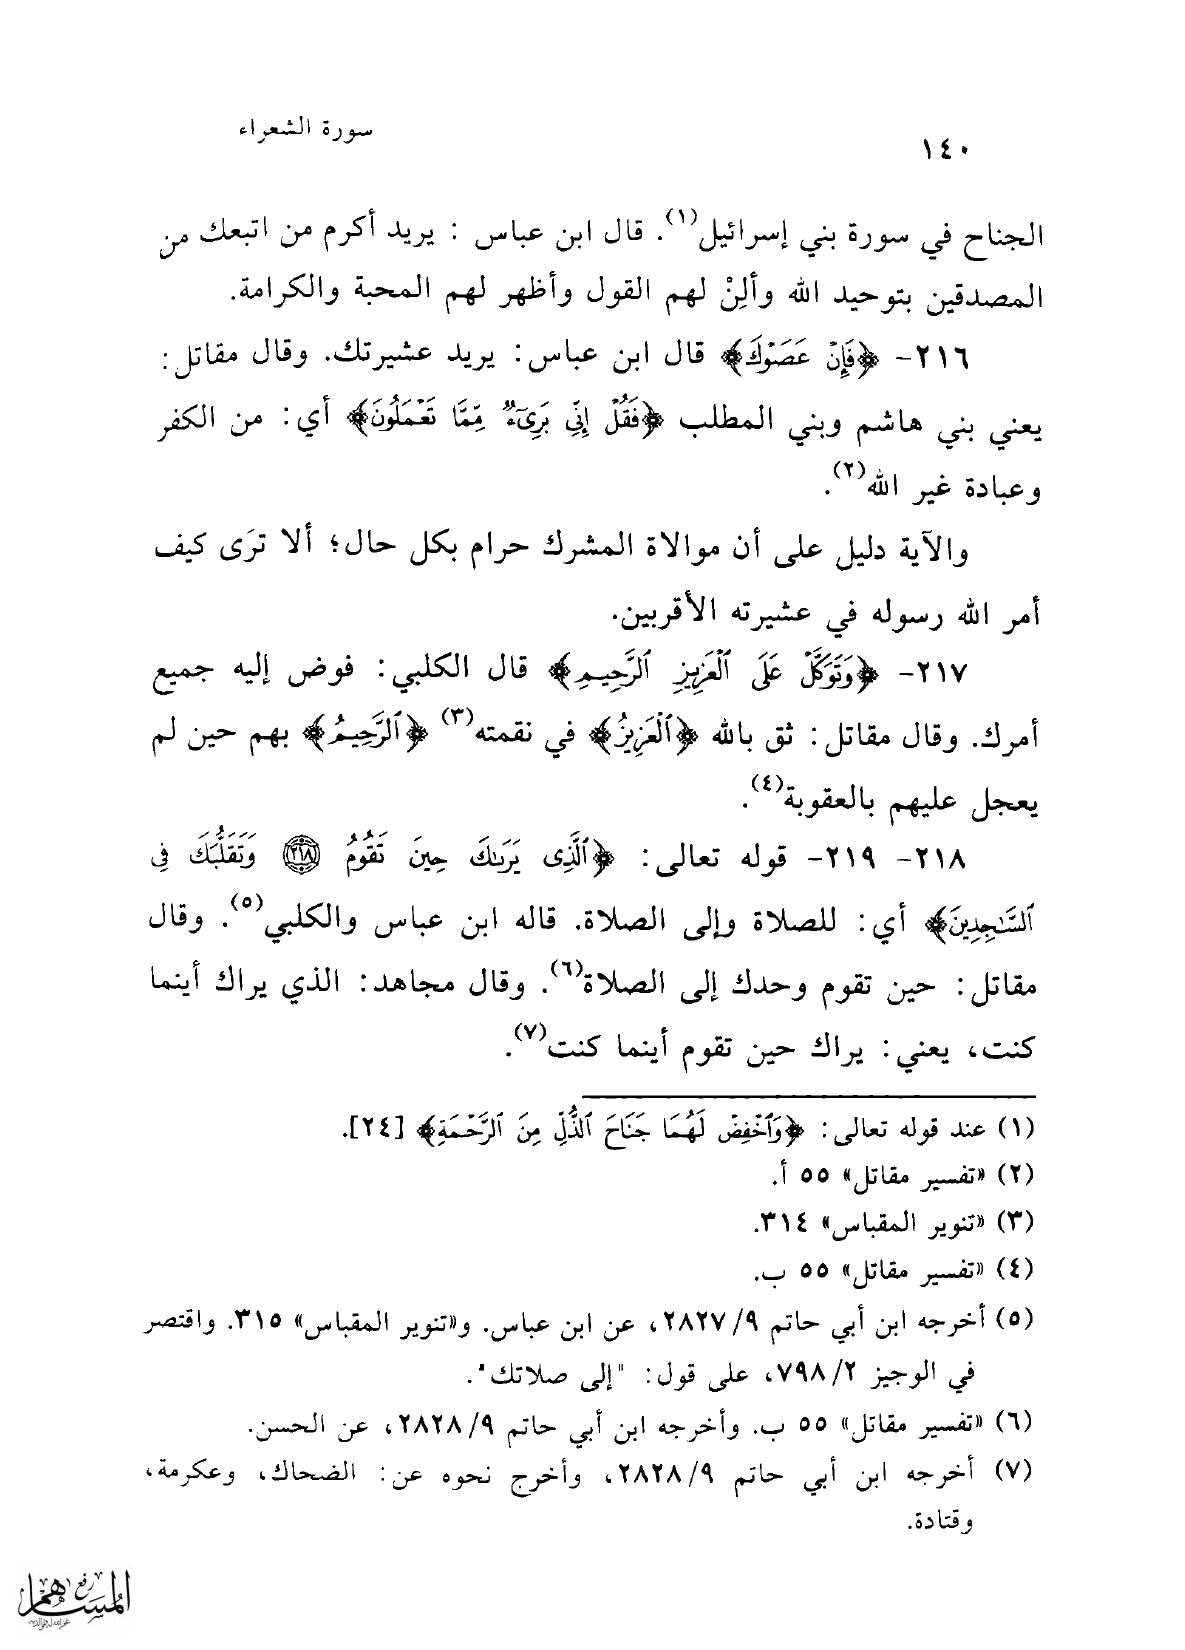 سورة الشعراء
١٤٠
الجناح في سورة بني إسرائيل(١). قال ابن عباس : يريد أكرم من اتبعك من
المصدقين بتوحيد الله وألِنْ لهم القول وأظهر لهم المحبة والكرامة.
٢١٦- ﴿فَإِنْ عَصَوْكَ﴾ قال ابن عباس: يريد عشيرتك. وقال مقاتل:
يعني بني هاشم وبني المطلب ﴿فَقُلْ إِنِّي بَرِيٓءٌ مِّمَّا تَعْمَلُونَ﴾ أي: من الكفر
وعبادة غير الله(٢).
والآية دليل على أن موالاة المشرك حرام بكل حال؛ ألا ترَى كيف
أمر الله رسوله في عشيرته الأقربين.
٢١٧- ﴿وَتَوَكَّلْ عَلَى ٱلْعَزِيزِ ٱلرَّحِيمِ﴾ قال الكلبي: فوض إليه جميع
أمرك. وقال مقاتل: ثق بالله ﴿ٱلْعَزِيزُ﴾ في نقمته(٣) ﴿ٱلرَّحِيمُ﴾ بهم حين لم
يعجل عليهم بالعقوبة(٤).
٢١٨- ٢١٩- قوله تعالى: ﴿ٱلَّذِى يَرَىٰكَ حِينَ تَقُومُ ٢١٨ وَتَقَلُّبَكَ فِى
ٱلسَّٰجِدِينَ﴾ أي: للصلاة وإلى الصلاة. قاله ابن عباس والكلبي(٥). وقال
مقاتل: حين تقوم وحدك إلى الصلاة(٦). وقال مجاهد: الذي يراك أينما
كنت، يعني: يراك حين تقوم أينما كنت(٧).
(١) عند قوله تعالى: ﴿وَٱخْفِضْ لَهُمَا جَنَاحَ ٱلذُّلِّ مِنَ ٱلرَّحْمَةِ﴾ [٢٤].
(٢) «تفسير مقاتل» ٥٥ أ.
(٣) «تنوير المقباس» ٣١٤.
(٤) «تفسير مقاتل» ٥٥ ب.
(٥) أخرجه ابن أبي حاتم ٩/ ٢٨٢٧، عن ابن عباس. و«تنوير المقباس» ٣١٥. واقتصر
في الوجيز ٢/ ٧٩٨، على قول: "إلى صلاتك".
(٦) «تفسير مقاتل» ٥٥ ب. وأخرجه ابن أبي حاتم ٩/ ٢٨٢٨، عن الحسن.
(٧) أخرجه ابن أبي حاتم ٩/ ٢٨٢٨، وأخرج نحوه عن: الضحاك، وعكرمة،
وقتادة.